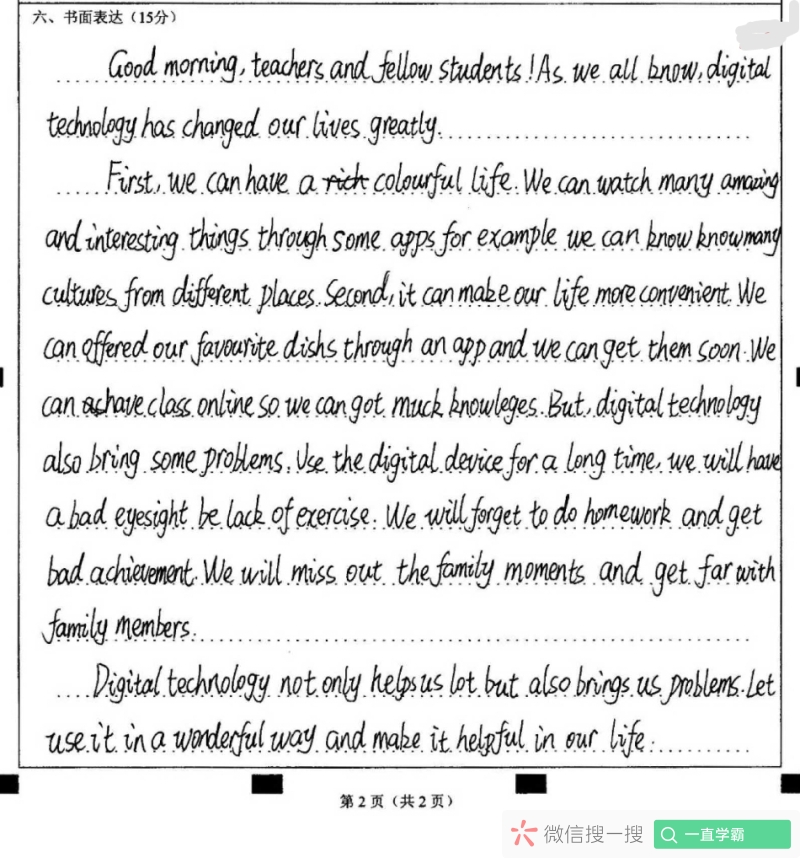 六、书面表达（15分）
Good morning, teachers and fellow students! As we all know, digital
technology has changed our lives greatly.
First, we can have a rich colourful life. We can watch many amazing
and interesting things through some apps for example we can know know many
cultures from different places. Second, it can make our life more convenient. We
can offered our favourite dishs through an app and we can get them soon. We
can have class online so we can got muck knowleges. But, digital technology
also bring some problems. Use the digital device for a long time, we will have
a bad eyesight be lack of exercise. We will forget to do homework and get
bad achievement. We will miss out the family moments and get far with
family members.
Digital technology not only helps us lot but also brings us problems. Let
use it in a wonderful way and make it helpful in our life.
第2页（共2页）
微信搜一搜
一直学霸